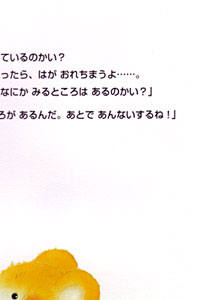 ているのかい？
ったら、はが おれちまうよ……。
なにか みるところは あるのかい？」
ろが あるんだ。あとで あんないするね！」